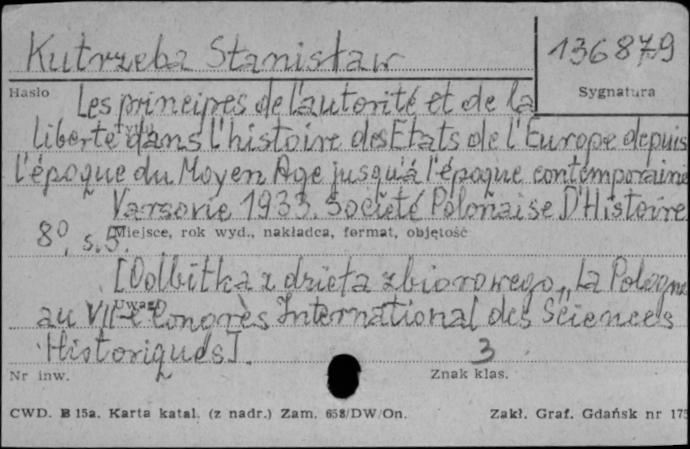 Kutrzeba Stanisław
136879
Hasło
Sygnatura
Les principes de l'autorité et de la
Tytuł
liberté dans l'histoire des Etats de l'Europe depuis
l'époque du Moyen Age jusqu'à l'époque contemporaine
Varsovie 1933. Société Polonaise D'Histoire
8°, s. 5.
Miejsce, rok wyd., nakładca, format, objętość
[Odbitka z dzieła zbiorowego „La Pologne
Uwagi
au VII-e Congrès International des Sciences
Historiques].
3
Nr inw.
Znak klas.
CWD. B 15a. Karta katal. (z nadr.) Zam. 658/DW/On.
Zakł. Graf. Gdańsk nr 175